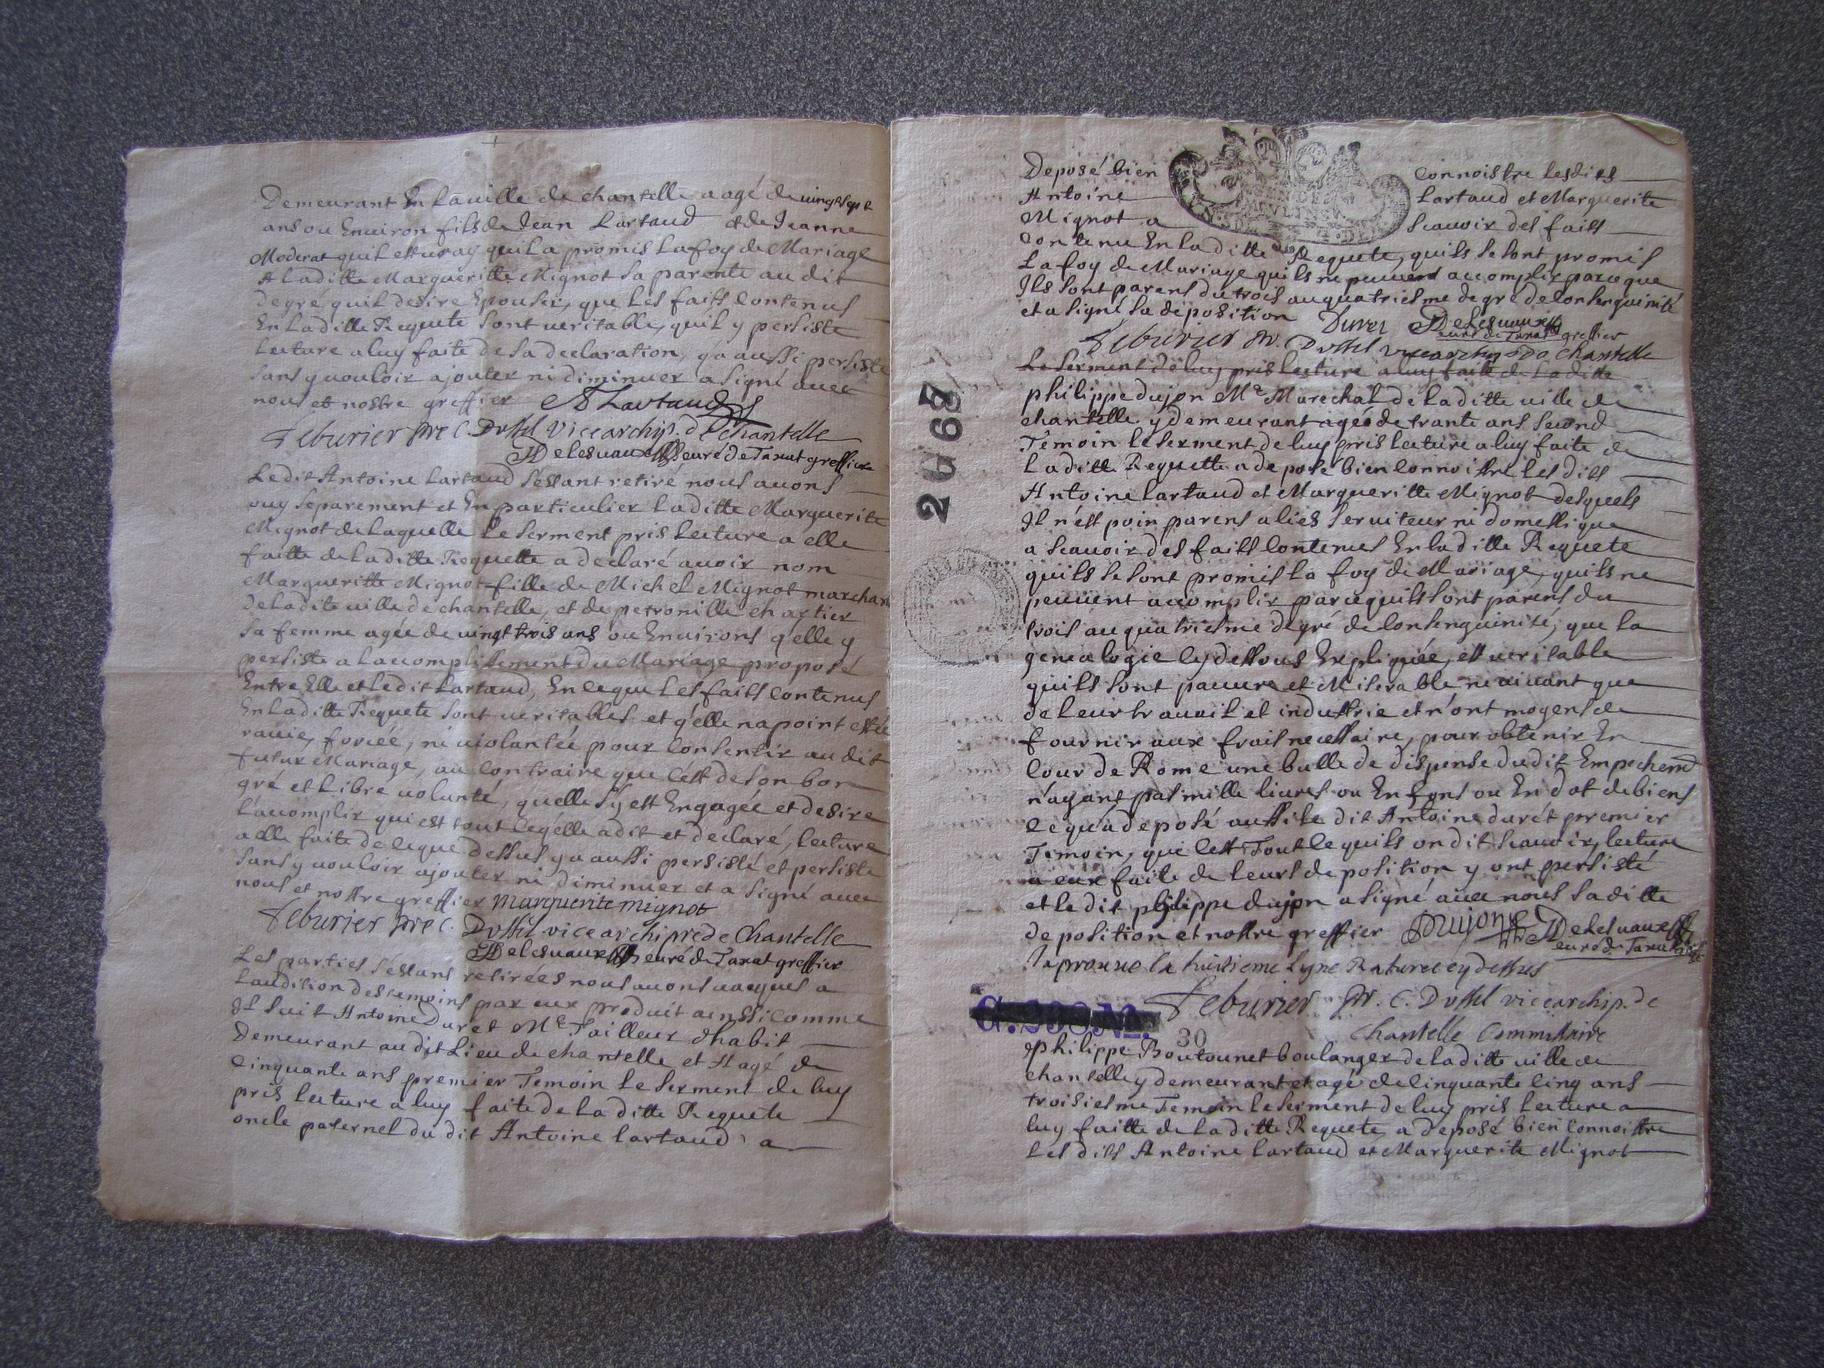 Demeurant En la ville de chantelle aagé de vingt sept
ans ou Environ fils de Jean Lartaud et de Jeanne
Moderat quil est vray quil a promis La foy de Mariage
A La ditte Margueritte Mignot sa parente au dit
degré, quil desire Epouser, que les faits Contenus
En La ditte Requete sont veritable, quil y persiste
Lecture a luy faite de sa declaration, y a aussi persisté
sans y vouloir ajouter ni diminuer a signé avec
nous et nostre greffier A Lartaud
feburier pre C. Dussel vicearchip. de Chantelle
Delesvaux curé de Taxat greffier
Ledit Antoine Lartaud s'estant retiré nous avons
ouy separement et En particulier La ditte Marguerite
Mignot de Laquelle Le serment pris Lecture a elle
faitte de La ditte Requette a declaré avoir nom
Margueritte Mignot fille de Michel Mignot marchan
de la dite ville de chantelle, et de petronille chartier
sa femme agée de vingt trois ans ou Environs q'elle y
persiste a Laccomplissement du Mariage proposé
Entre Elle et Ledit Lartaud, En ce que Les faits contenus
En La ditte Requete sont veritables et q'elle na point estée
ravie, forcée, ni violantée pour Consentir au dit
futur Mariage, au contraire que C'est de son bon
gré et Libre volonté, quelle s'y est Engagée et desire
L'acomplir qui est tout ce q'elle a dit et declaré, Lecture
a elle faite de ce que dessus y a aussi persisté et persiste
sans y vouloir ajouter ni diminuer et a signé avec
nous et nostre greffier marguerite mignot
feburier pre C. Dussel vicearchipre de Chantelle
Delesvaux curé de Taxat greffier
Les parties s'estans retirées nous avons vacqués a
Laudition des temoins par eux produit ainsi comme
Il suit Antoine Duret Me Tailleur d'habit
Demeurant au dit Lieu de chantelle et Hagé de
Cinquante ans premier Temoin Le serment de luy
pris Lecture a luy faite de La ditte Requete
oncle paternel du dit Antoine Lartaud a
Deposé bien connoistre lesdits
Antoine Lartaud et Marguerite
Mignot a scavoir des faits
contenu En la ditte Requete, quils se sont promis
La foy de Mariage quils ne peuvent accomplir parceque
Ils sont parens du trois au quatriesme degré de Consenguinité
et a signé sa deposition Duret Delesvaux
curé de Taxat greffier
feburier pr. Dussel vicearchip. De Chantelle
Le serment de luy pris Lecture a luy faite de La ditte
philippe dujon Me Marechal de la ditte ville de
chantelle, y demeurant agé de trante ans second
Temoin Le serment de luy pris Lecture a luy faite de
La ditte Requette a deposé bien Connoistre Les dits
Antoine Lartaud et Margueritte Mignot desquels
Il n'est poin parens aliés serviteur ni domestique
a scavoir des faits Contenus En la ditte Requete
quils se sont promis La foy de Mariage, quils ne
peuvent accomplir parcequils sont parens du
trois au quatriesme degré de Consenguinité, que la
genealogie Cy dessous Expliquée, est veritable
quils sont pauvre et Miserable ne vivant que
de Leur travail et industrie et n'ont moyens de
fournir aux frais necessaire, pour obtenir En
Cour de Rome une bulle de dispense du dit Empechemt
n'ayant pas mille livres ou En fons ou En dot de biens
ce qu'a deposé aussi le dit Antoine duret premier
Temoin, que C'est Tout ce quils on dit scavoir, Lecture
a eux faite de Leurs deposition y ont persisté
et le dit philippe dujon a signé avec nous sa ditte
deposition et nostre greffier Dujon Delesvaux
curé de Taxat
Japrouve la huitieme Lyne Raturee cy dessus
feburier pr. C. Dussel vicearchip. de
Chantelle Commissaire
philippe Boutounet boulanger de la ditte ville de
chantelle y demeurant et agé de Cinquante Cinq ans
troisiesme Temoin Le serment de luy pris Lecture a
luy faitte de la ditte Requete, a deposé bien Connoistre
Les dits Antoine Lartaud et Marguerite Mignot
2G 68
30